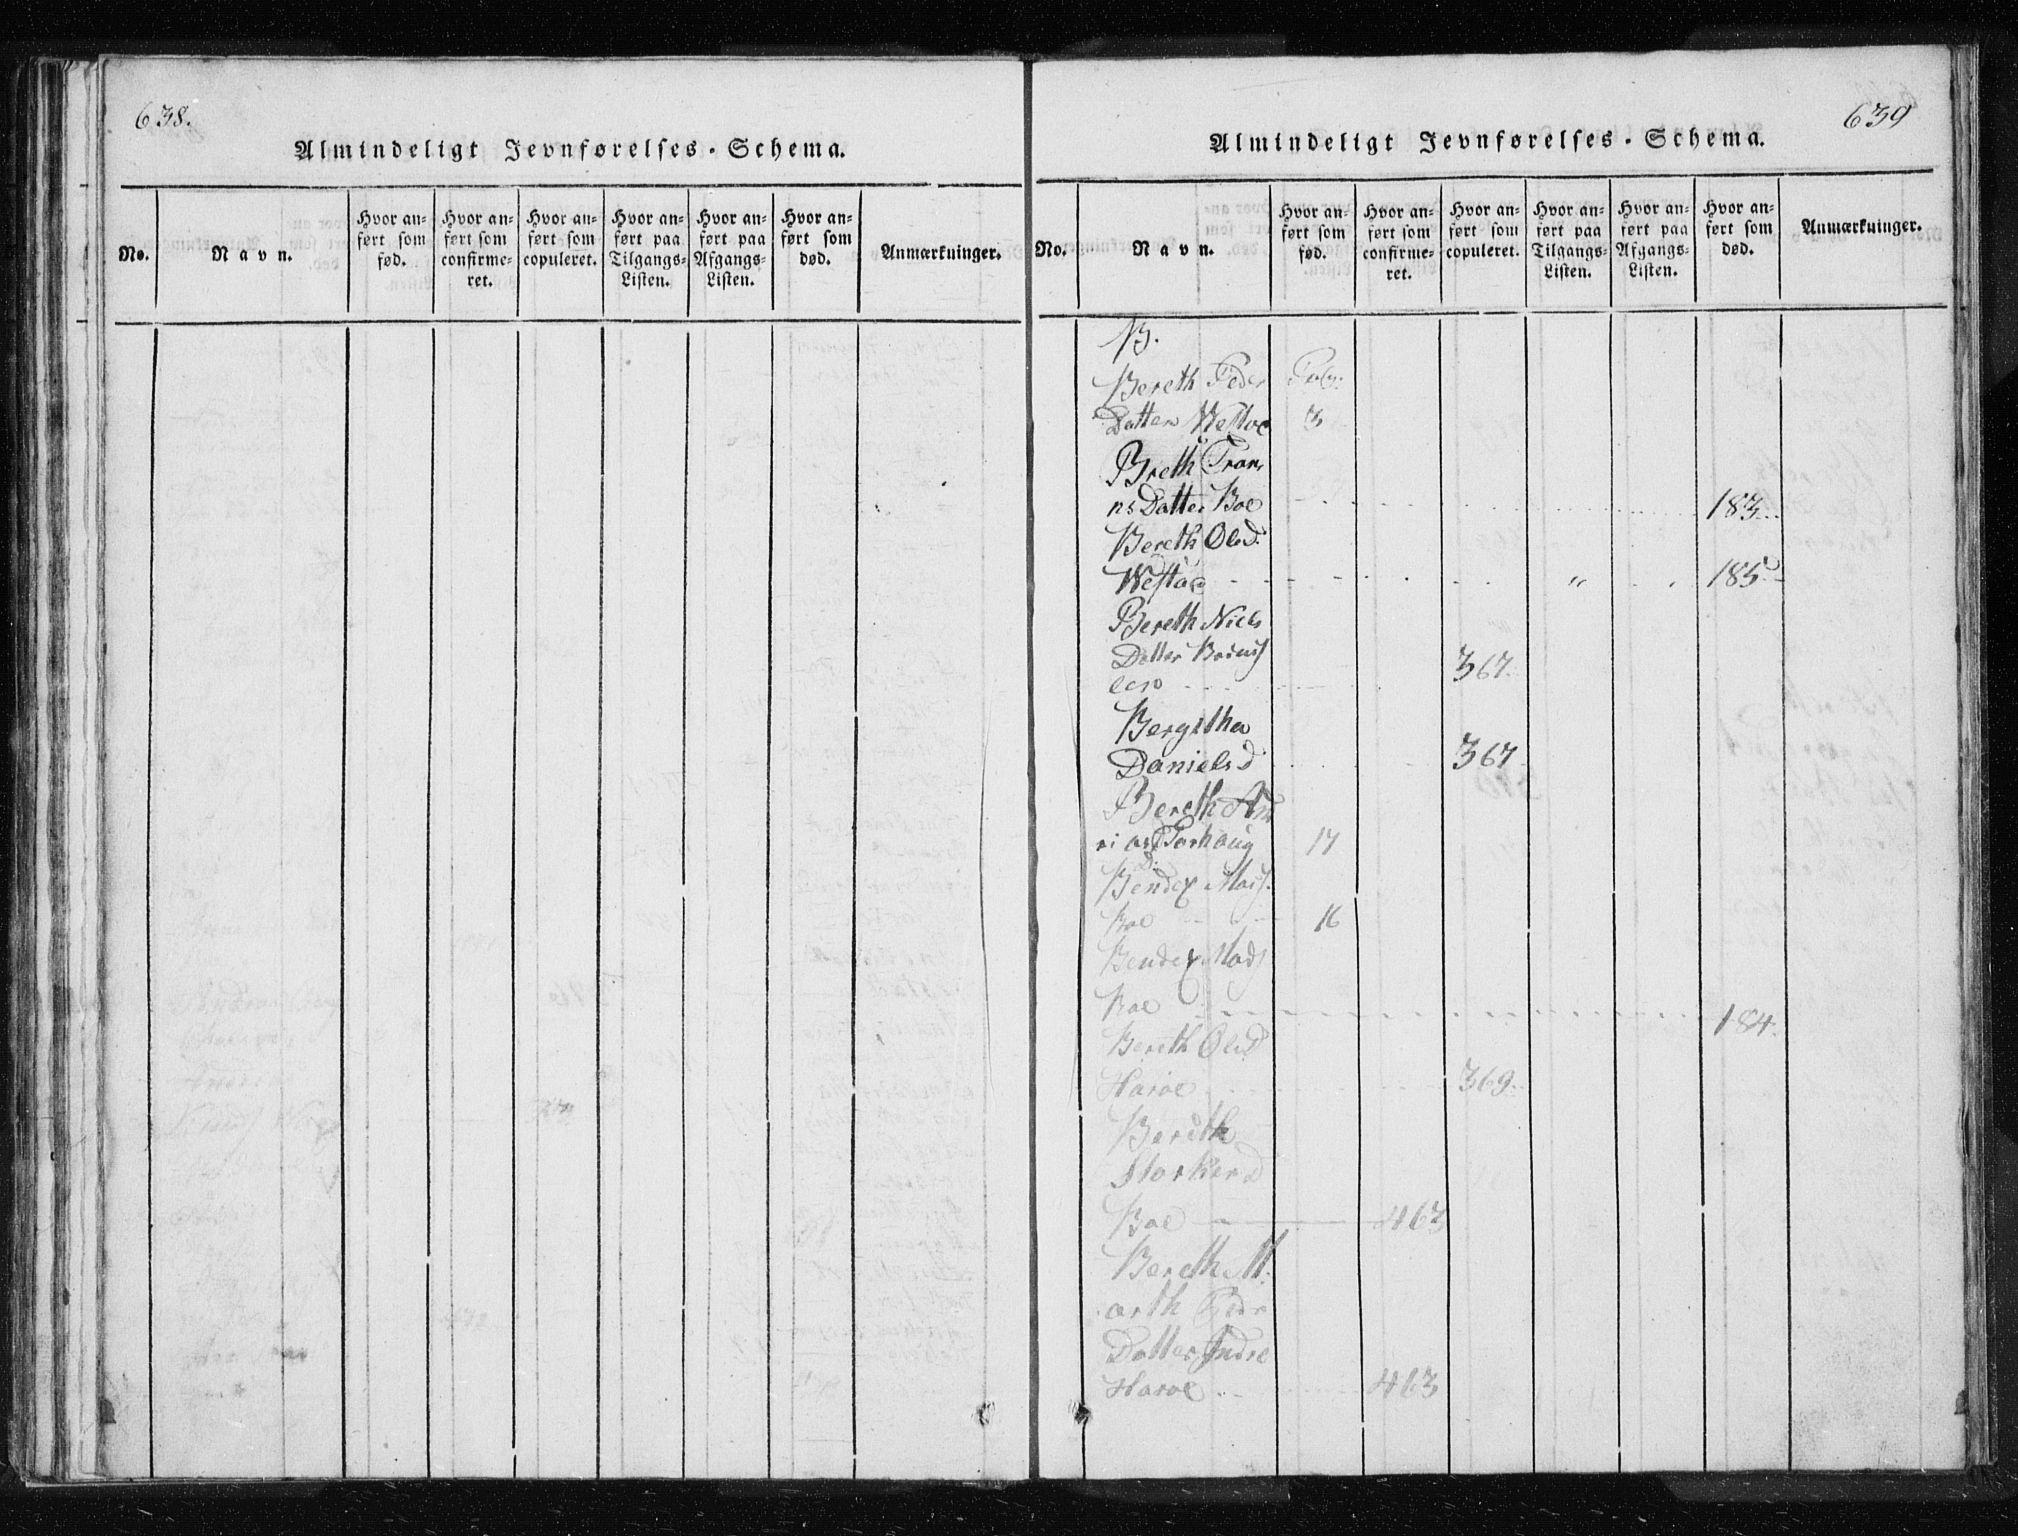 638.
Almindeligt Jevnførelses-Schema.
No.
Navn.
Hvor an-
ført som
fød.
Hvor an-
ført som
confirme-
ret.
Hvor an-
ført som
copuleret.
Hvor an-
ført paa
Tilgangs-
Listen.
Hvor an-
ført paa
Afgangs-
Listen.
Hvor an-
ført som
død.
Anmærkninger.
639
Almindeligt Jevnførelses-Schema.
No.
Navn.
Hvor an-
ført som
fød.
Hvor an-
ført som
confirme-
ret.
Hvor an-
ført som
copuleret.
Hvor an-
ført paa
Tilgangs-
Listen.
Hvor an-
ført paa
Afgangs-
Listen.
Hvor an-
ført som
død.
Anmærkninger.
B.
Bereth Peder
Datter 3
Breth
ns Datter Boe 183
Bereth Olsd.
Westad 185
Bereth Niels
Datter
367
Bergitha
Daniels d 367
Bereth
17
Bendex
Boe 16
Bendex Mads
Boe 184
Bereth Olsd
Haroe 369
Bereth
Storkerd
Boe 463
Bereth M
arth Peder
Datter Indre
Haroe 463